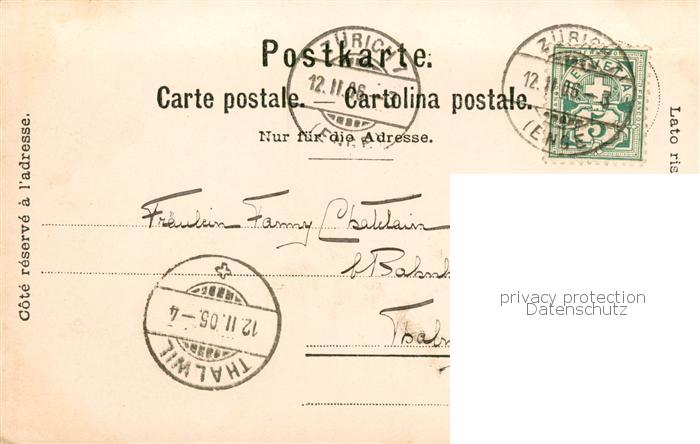 Postkarte.
Carte postale. — Cartolina postale.
Nur für die Adresse.
Côté réservé à l'adresse.
Lato ris
ZÜRICH 1
12.II.05.
(ENGE)
ZÜRICH 1
12.II.05. 3
(ENGE)
HELVETIA
5
Fräulein Fanny Chatelain
b/Bahnh
Thalw
THALWIL
12.II.05.–4
privacy protection
Datenschutz